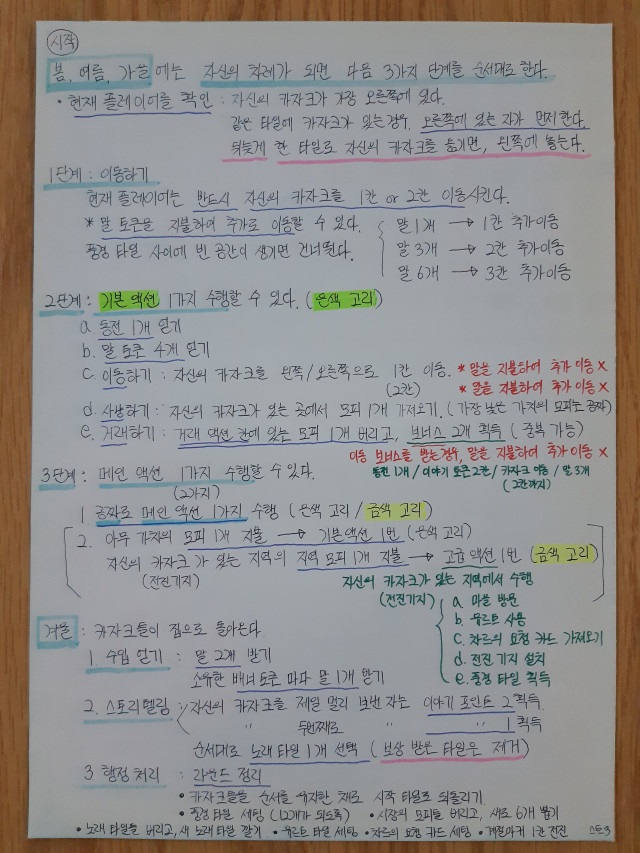 시작
봄, 여름, 가을에는 자신의 차례가 되면 다음 3가지 단계를 순서대로 한다.
• 현재 플레이어를 확인 : 자신의 카자크가 가장 오른쪽에 있다.
같은 타일에 카자크가 있는 경우, 오른쪽에 있는 자가 먼저 한다.
뒤늦게 한 타일로 자신의 카자크를 옮기면, 왼쪽에 놓는다.
1단계 : 이동하기
현재 플레이어는 반드시 자신의 카자크를 1칸 or 2칸 이동시킨다.
* 말 토큰을 지불하여 추가로 이동할 수 있다.
말 1개 → 1칸 추가이동
풍경 타일 사이에 빈 공간이 생기면 건너뛴다.
말 3개 → 2칸 추가이동
말 6개 → 3칸 추가이동
2단계 : 기본 액션 1가지 수행할 수 있다. (은색 고리)
a. 동전 1개 얻기
b. 말 토큰 4개 얻기
c. 이동하기 : 자신의 카자크를 왼쪽/오른쪽으로 1칸 이동. * 말을 지불하여 추가 이동 X
(2칸) * 말을 지불하여 추가 이동 X
d. 사냥하기 : 자신의 카자크가 있는 곳에서 모피 1개 가져오기. (가장 낮은 가치의 모피는 공짜)
e. 거래하기 : 거래 액션 칸에 있는 모피 1개 버리고, 보너스 2개 획득 (중복 가능)
이동 보너스를 받는경우, 말을 지불하여 추가 이동 X
3단계 : 메인 액션 1가지 수행할 수 있다.
동전 1개 / 이야기 토큰 2칸 / 카자크 이동 / 말 3개
(2가지)
(2칸까지)
1. 공짜로 메인 액션 1가지 수행 (은색 고리 / 금색 고리)
2. 아무 가치의 모피 1개 지불 → 기본액션 1번 (은색 고리)
자신의 카자크가 있는 지역의 지역 모피 1개 지불 → 고급 액션 1번 (금색 고리)
(전진기지)
자신의 카자크가 있는 지역에서 수행
(전진기지)
a. 마을 방문
b. 유르트 사용
c. 차르의 요청 카드 가져오기
d. 전진 기지 설치
e. 풍경 타일 획득
겨울 : 카자크들이 집으로 돌아온다.
1. 수입 얻기 : 말 2개 받기
소유한 배너 토큰 마다 말 1개 받기
2. 스토리텔링 : 자신의 카자크를 제일 멀리 보낸 자는 이야기 포인트 2 획득
두번째로 " " 1 획득
순서대로 노래 타일 1개 선택 (보상 받은 타일은 제거)
3 행정 처리 : 라운드 정리
• 카자크들을 순서를 유지한 채로 시작 타일로 되돌리기
• 풍경 타일 세팅 (12개가 되도록) • 시장의 모피들 버리고, 새로 6개 뽑기
• 노래 타일들 버리고, 새 노래 타일 깔기 • 유르트 타일 세팅 • 차르의 요청 카드 세팅 • 계절마커 1칸 전진